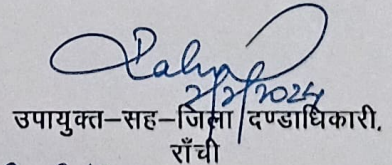 2/2/2024
उपायुक्त-सह-जिला दण्डाधिकारी,
राँची